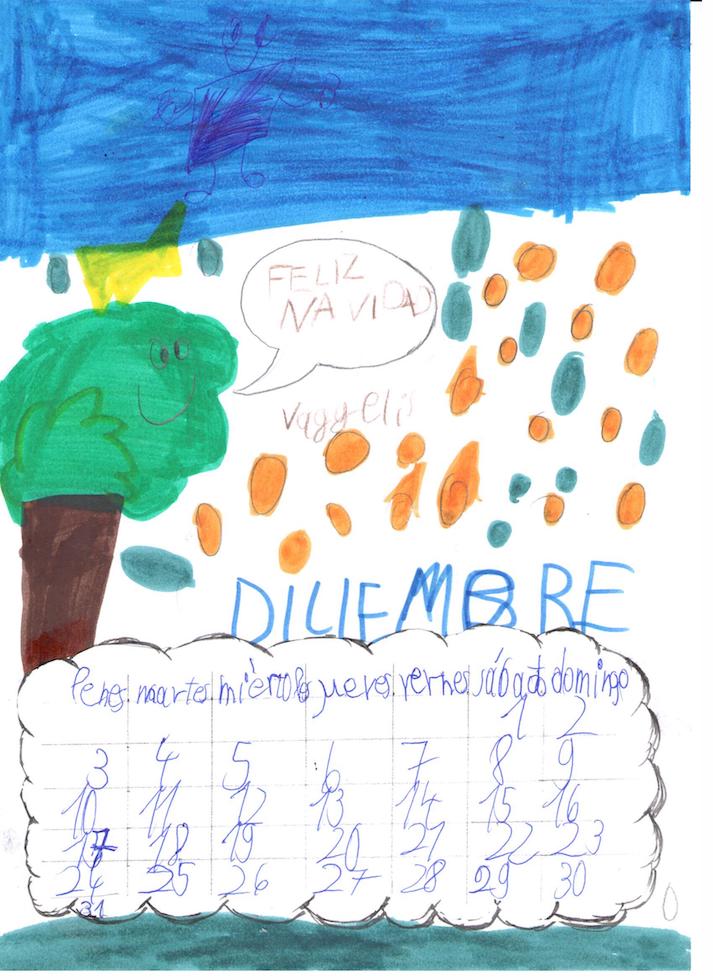 FELIZ
NAVIDAD
Vaggelis
DICIEMBRE
lenes maartes mièrcoles jueves vernes sábado domingo
1 2
3 4 5 6 7 8 9
10 11 12 13 14 15 16
17 18 19 20 21 22 23
24 25 26 27 28 29 30
31